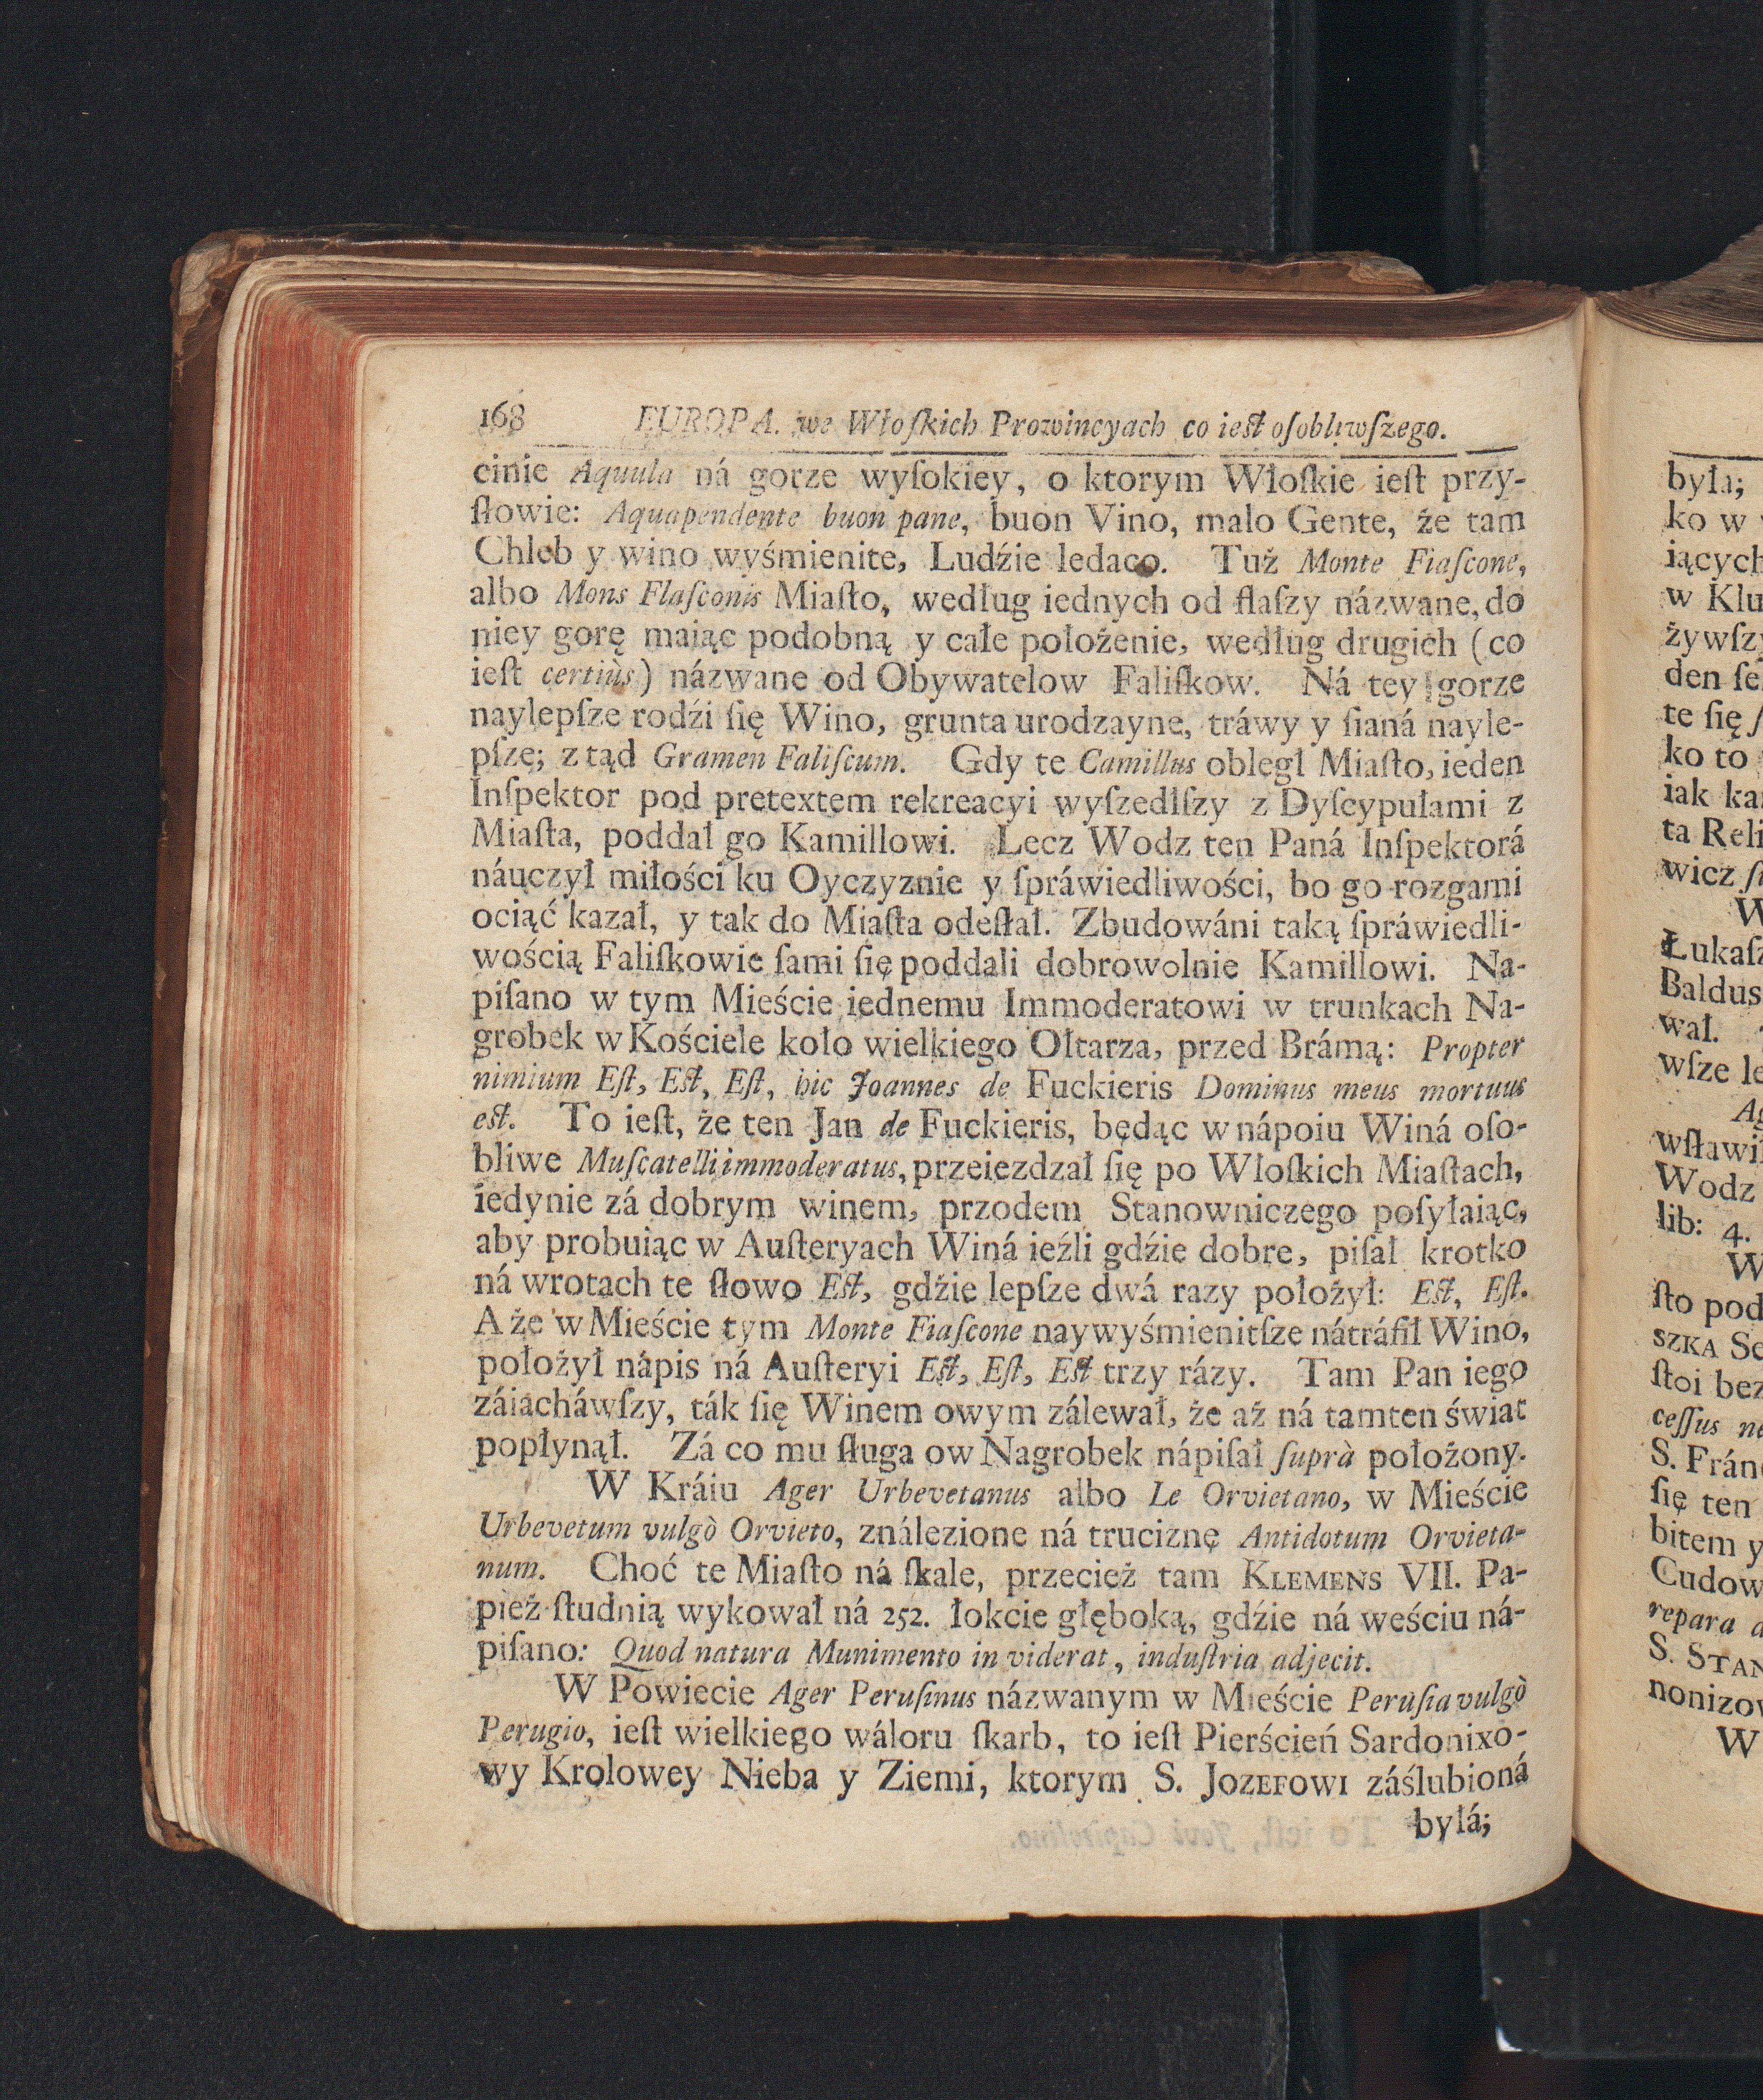 168 EUROPA. we Włoſkich Prowincyach co ieſt oſobliwſzego.
cinie Aquula ná gorze wyſokiey, o ktorym Włoſkie ieſt przy-
ſłowie: Aquapendente buon pane, buon Vino, malo Gente, że tam
Chleb y wino wyśmienite, Ludźie ledaco. Tuż Monte Fiaſcone,
albo Mons Flaſconis Miaſto, według iednych od flaſzy názwane, do
niey gorę maiąc podobną y całe położenie, według drugich (co
ieſt certiùs) názwane od Obywatelow Faliſkow. Ná tey gorze
naylepſze rodźi ſię Wino, grunta urodzayne, tráwy y ſianá nayle-
pſze; z tąd Gramen Faliſcum. Gdy te Camillus obległ Miaſto, ieden
Inſpektor pod pretextem rekreacyi wyſzedłſzy z Dyſcypułami z
Miaſta, poddał go Kamillowi. Lecz Wodz ten Paná Inſpektorá
náuczył miłości ku Oyczyznie y ſpráwiedliwości, bo go rozgami
ociąć kazał, y tak do Miaſta odeſłał. Zbudowáni taką ſpráwiedli-
wością Faliſkowie ſami ſię poddali dobrowolnie Kamillowi. Na-
piſano w tym Mieście iednemu Immoderatowi w trunkach Na-
grobek w Kościele koło wielkiego Ołtarza, przed Brámą: Propter
nimium Eſt, Eſt, Eſt, hic Joannes de Fuckieris Dominus meus mortuus
eſt. To ieſt, że ten Jan de Fuckieris, będąc w nápoiu Winá oſo-
bliwe Muſcatelli immoderatus, przeiezdzał ſię po Włoſkich Miaſtach,
iedynie zá dobrym winem, przodem Stanowniczego poſyłaiąc,
aby probuiąc w Auſteryach Winá ieźli gdźie dobre, piſał krotko
ná wrotach te ſłowo Eſt, gdźie lepſze dwá razy położył: Eſt, Eſt.
A że w Mieście tym Monte Fiaſcone naywyśmienitſze nátráfił Wino,
położył nápis ná Auſteryi Eſt, Eſt, Eſt trzy rázy. Tam Pan iego
záiácháwſzy, ták ſię Winem owym zálewał, że aż ná tamten świat
popłynął. Zá co mu ſługa ow Nagrobek nápiſał ſuprà położony.
W Kráiu Ager Urbevetanus albo Le Orvietano, w Mieście
Urbevetum vulgò Orvieto, ználezione ná truciznę Antidotum Orvieta-
num. Choć te Miaſto ná ſkale, przecież tam KLEMENS VII. Pa-
pież ſtudnią wykował ná 252. łokcie głęboką, gdźie ná weściu ná-
piſano: Quod natura Munimento in viderat, induſtria adjecit.
W Powiecie Ager Peruſinus názwanym w Mieście Peruſia vulgò
Perugio, ieſt wielkiego wáloru ſkarb, to ieſt Pierścień Sardonixo-
wy Krolowey Nieba y Ziemi, ktorym S. JOZEFOWI záślubioná
byłá;
była;
ko w
iących
w Klu
żywſzy
den ſe
te ſię
ko to
iak ka
ta Reli
wicz
W
Łukaſz
Baldus
wał.
wſze le
Ag
wſławi
Wodz
lib: 4.
W
ſto pod
SZKA Se
ſtoi bez
ceſſus ne
S. Fránc
ſię ten
bitem y
Cudow
repara
S. STAN
nonizow
W